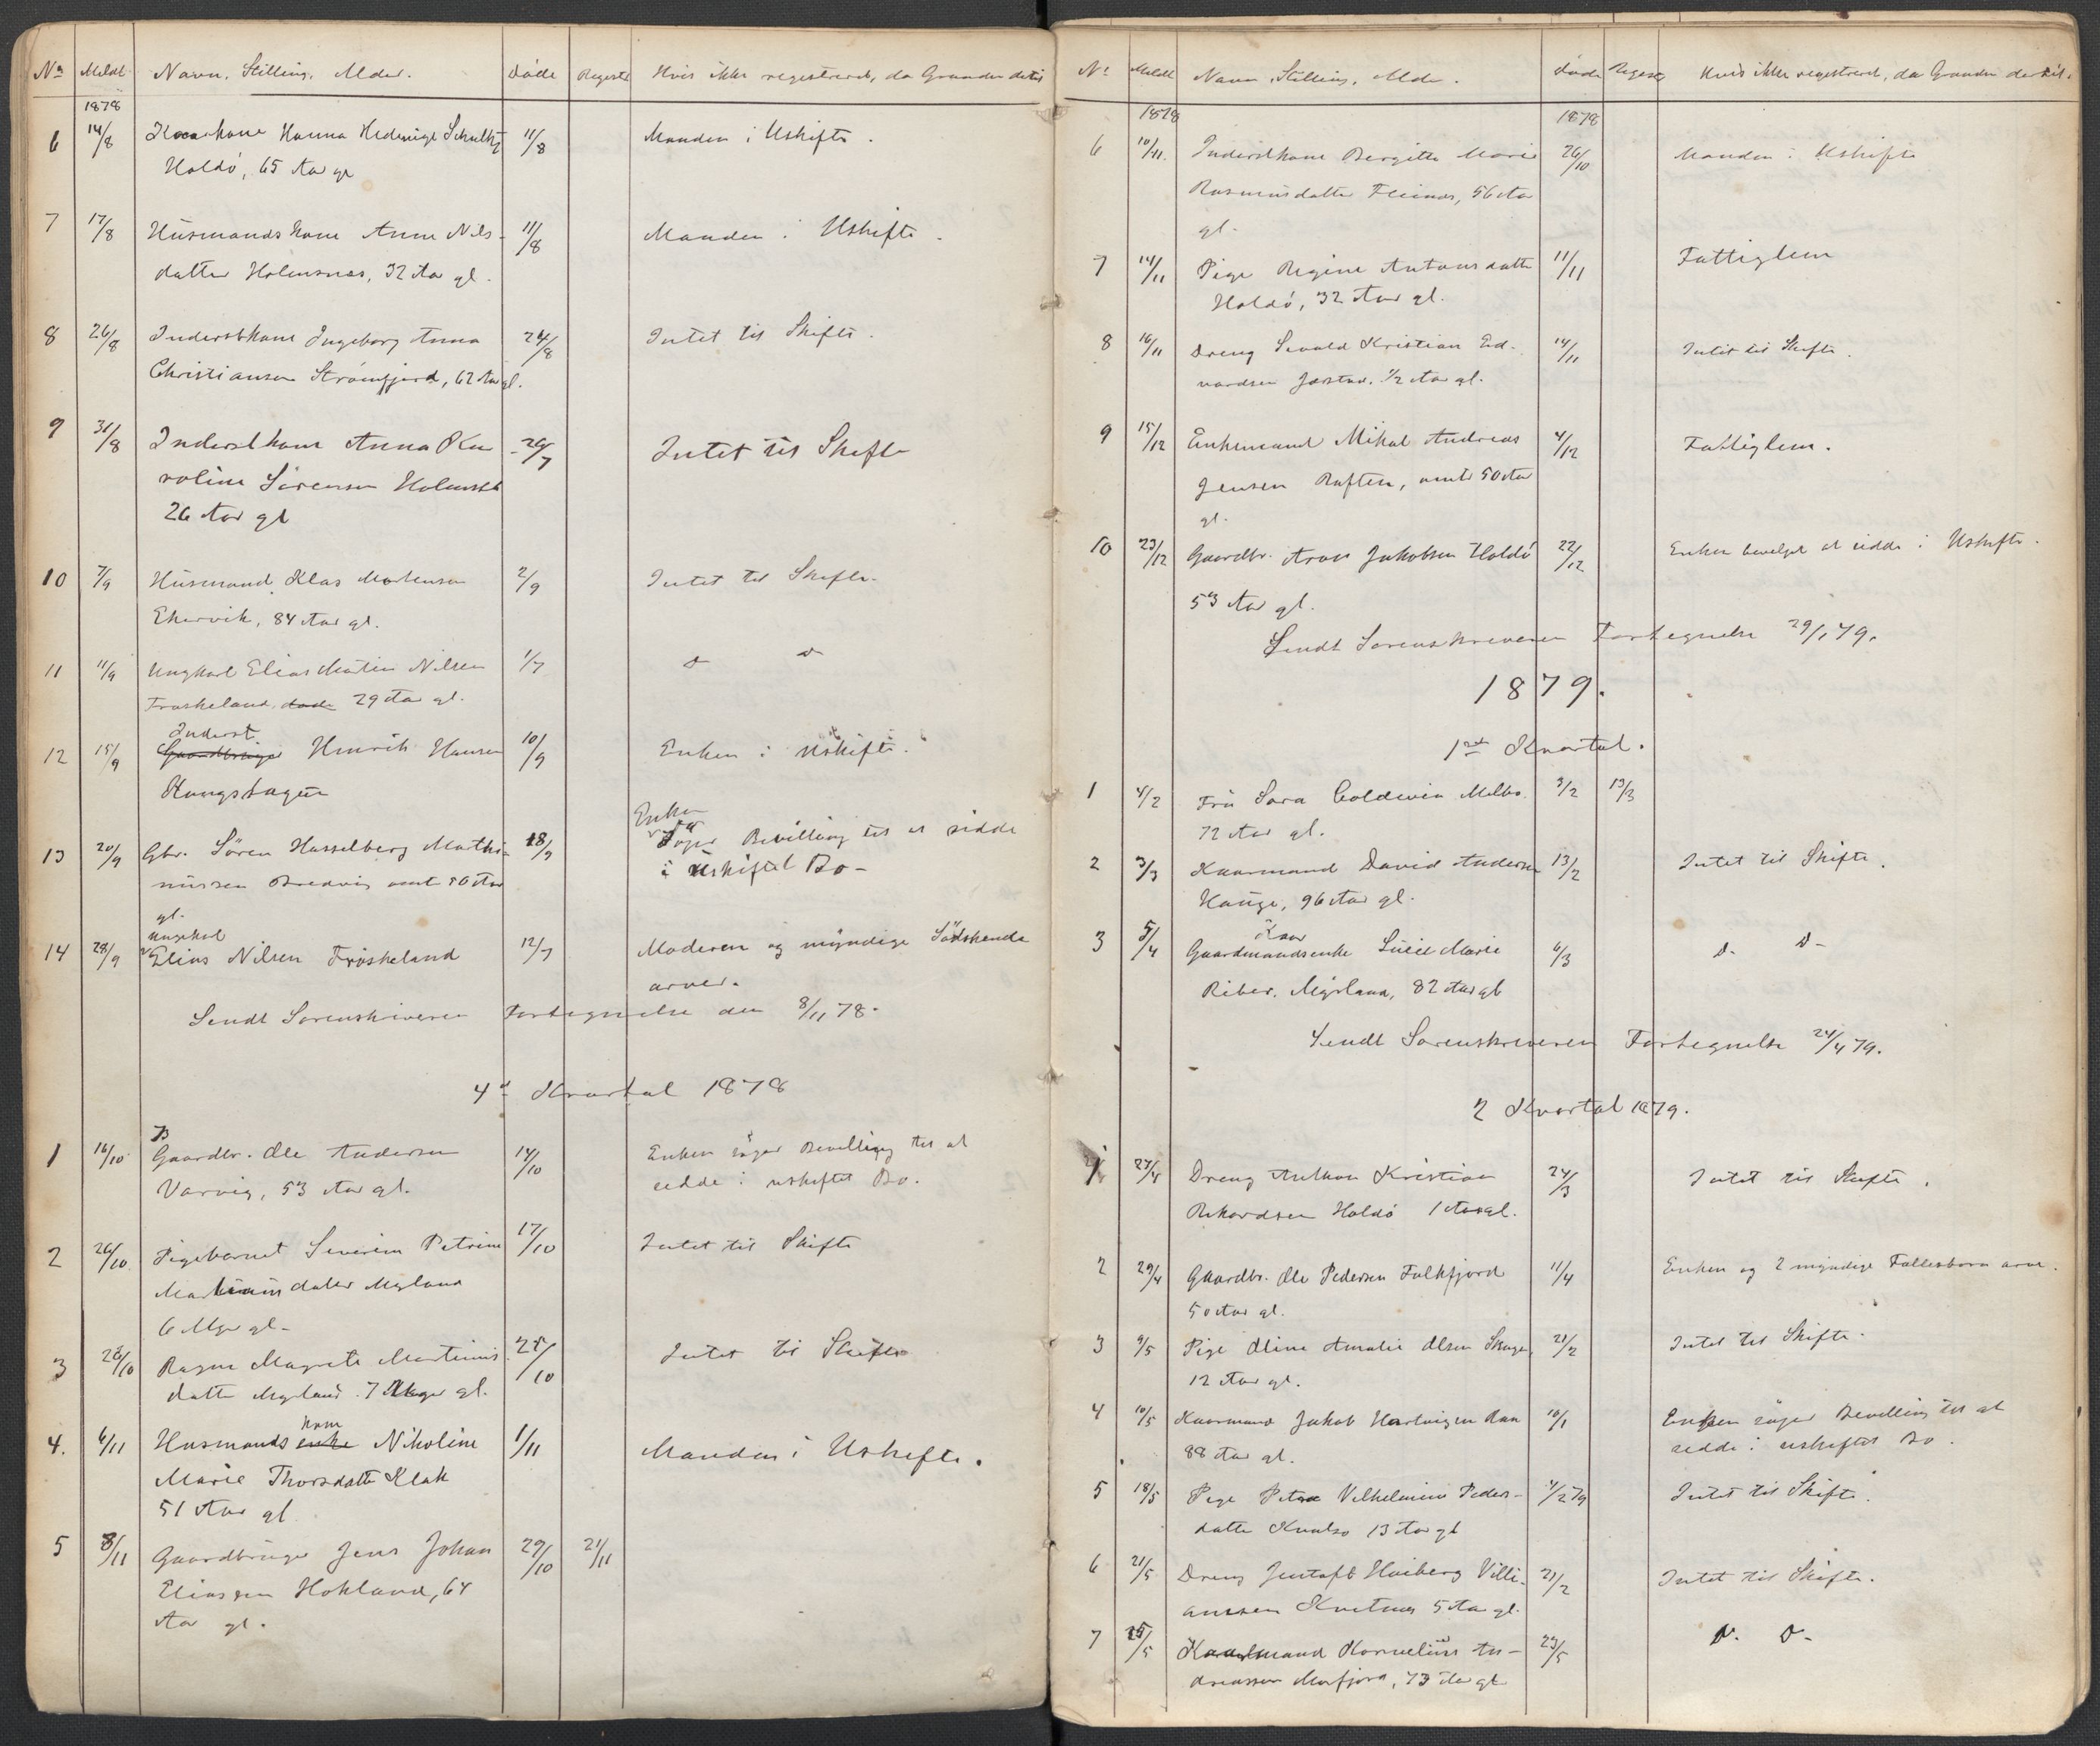 No Meldt Navn, Stilling, Alder. Døde Registr Hvis ikke registreret, da Grunden dertil
1878
6 14/8 Kaarkone Hanna Hedevige Schultz 11/8 Manden i Uskifte.
Holdö, 65 Aar gl
7 17/8 Husmandskone Anne Nils- 11/8 Manden i Uskifte.
datter Holmsnes, 32 Aar gl.
8 26/8 Inderstkone Ingeborg Anna 24/8 Intet til Skifte.
Christiansen Strømfjord, 62 Aar gl.
9 31/8 Inderstkone Anna Ka 26/7 Intet til Skifte
roline Sörensen Holmstd
26 Aar gl
10 7/9 Husmand Klas Mortensen 2/9 Intet til Skifte.
Ekervik, 84 Aar gl.
11 11/9 Ungkarl Elias Martin Nilsen 1/7 d d
Frøskeland, døde 29 Aar gl.
Inderst
12 15/9 Gaardbruger Henrik Hansen 10/9 Enken i Uskifte.
Kungshagen
Enken
13 20/9 Gbr. Sören Hasselberg Marthi- 18/9 söger Bevilling til at sidde
nussen Bredvig omt 50 Aar i Uskiftet Bo-
gl.
Ungkarl
14 28/9 Elias Nilsen Fröskeland 12/7 Moderen og myndige Södskende
arver.
Sendt Sorenskriveren Fortegnelse den 8/11 78.
4d Kvartal 1878
1 16/10 Gaardbr. Ole Andersen 14/10 Enken söger Bevilling til at
Varvig, 53 Aar gl. sidde i uskiftet Bo.
2 26/10 Pigebarnet Severine Petrine 17/10 Intet til Skifte
Martinusdatter Myland
6 Uger gl-
3 26/10 Ragna Magrete Martinus 25/10 Intet til Skifte
datter Myland. 7 Uger gl.
kone
4. 6/11 Husmandsenke Nikoline 1/11 Manden i Uskifte.
Marie Thorsdatte Klak
51 Aar gl.
5 8/11 Gaardbruger Jens Johan 29/10 21/11
Eliassen Hokland, 64
Aar gl.
No Meldt Navn, Stilling, Alder. Døde Registr Hvis ikke registreret, da Grunden dertil.
1878 1878
6 10/11. Inderstkone Bergitte Marie 26/10 Manden i Uskifte
Rasmusdatter Fleines, 56 Aar
gl.
7 14/11 Pige Regine Antonsdatte 11/11 Fattiglem
Holdö, 32 Aar gl.
8 16/11 Dreng Sevald Kristian Ed- 14/11 Intet til Skifte.
vardsen Jørstad. 1/2 Aar gl.
9 15/12 Enkemand Mikal Andreas 4/12 Fattiglem.
Jensen Raften, omtr 50 Aar
gl.
10 23/12 Gaardbr. Aron Jakobsen Holdö 22/12 Enken bevilget at sidde i Uskifte.
53 Aar gl.
Sendt Sorenskriveren Fortegnelse 29/1 79.
1879.
1ste Kvartal.
1 4/2 Fru Sara Coldevin Melbo. 3/2 13/3
72 Aar gl.
2 3/3 Kaarmand David Andersen 13/2 Intet til Skifte.
Hauge, 96 Aar gl.
Kaar
3 5/4 Gaardmandsenke Lucie Marie 6/3 d- d-
Riber, Myrland, 82 Aar gl
Sendt Sorenskriveren Fortegnelse 24/4 79.
2 Kvartal 1879.
1 27/4 Dreng Anthon Kristian 24/3 Intet til Skifte.
Rikardsen Holdö 1 Aar gl.
2 29/4 Gaardbr. Ole Pedersen Falkfjord 11/4 Enken og 2 myndige Fællesbørn arve.
50 Aar gl.
3 9/5 Pige Oline Amalie Olsen Skage 21/2 Intet til Skifte.
12 Aar gl.
4 10/5 Kaarmand Jakob Hartvigsen Raa 16/1 Enken söger Bevilling til at
88 Aar gl. sidde i uskiftet Bo.
5 18/5 Pige Petra Vilhelmine Peders- 4/2 79 Intet til Skifte.
datte 13 Aar gl
6 21/5 Dreng Hviberg Villi- 21/2 Intet til Skifte.
amsen Kvitnes 5 Aar gl.
7 25/5 Kaarmand Kornelius An- 23/5 d. d-
dreassen Morfjord, 73 Aar gl